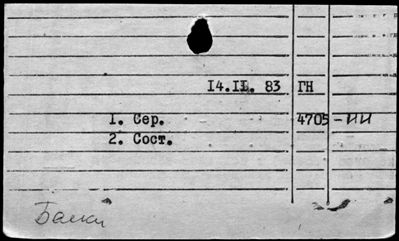 14.II. 83 ГН
1. Сер. 4705-НИ
2. Сост.
Банки